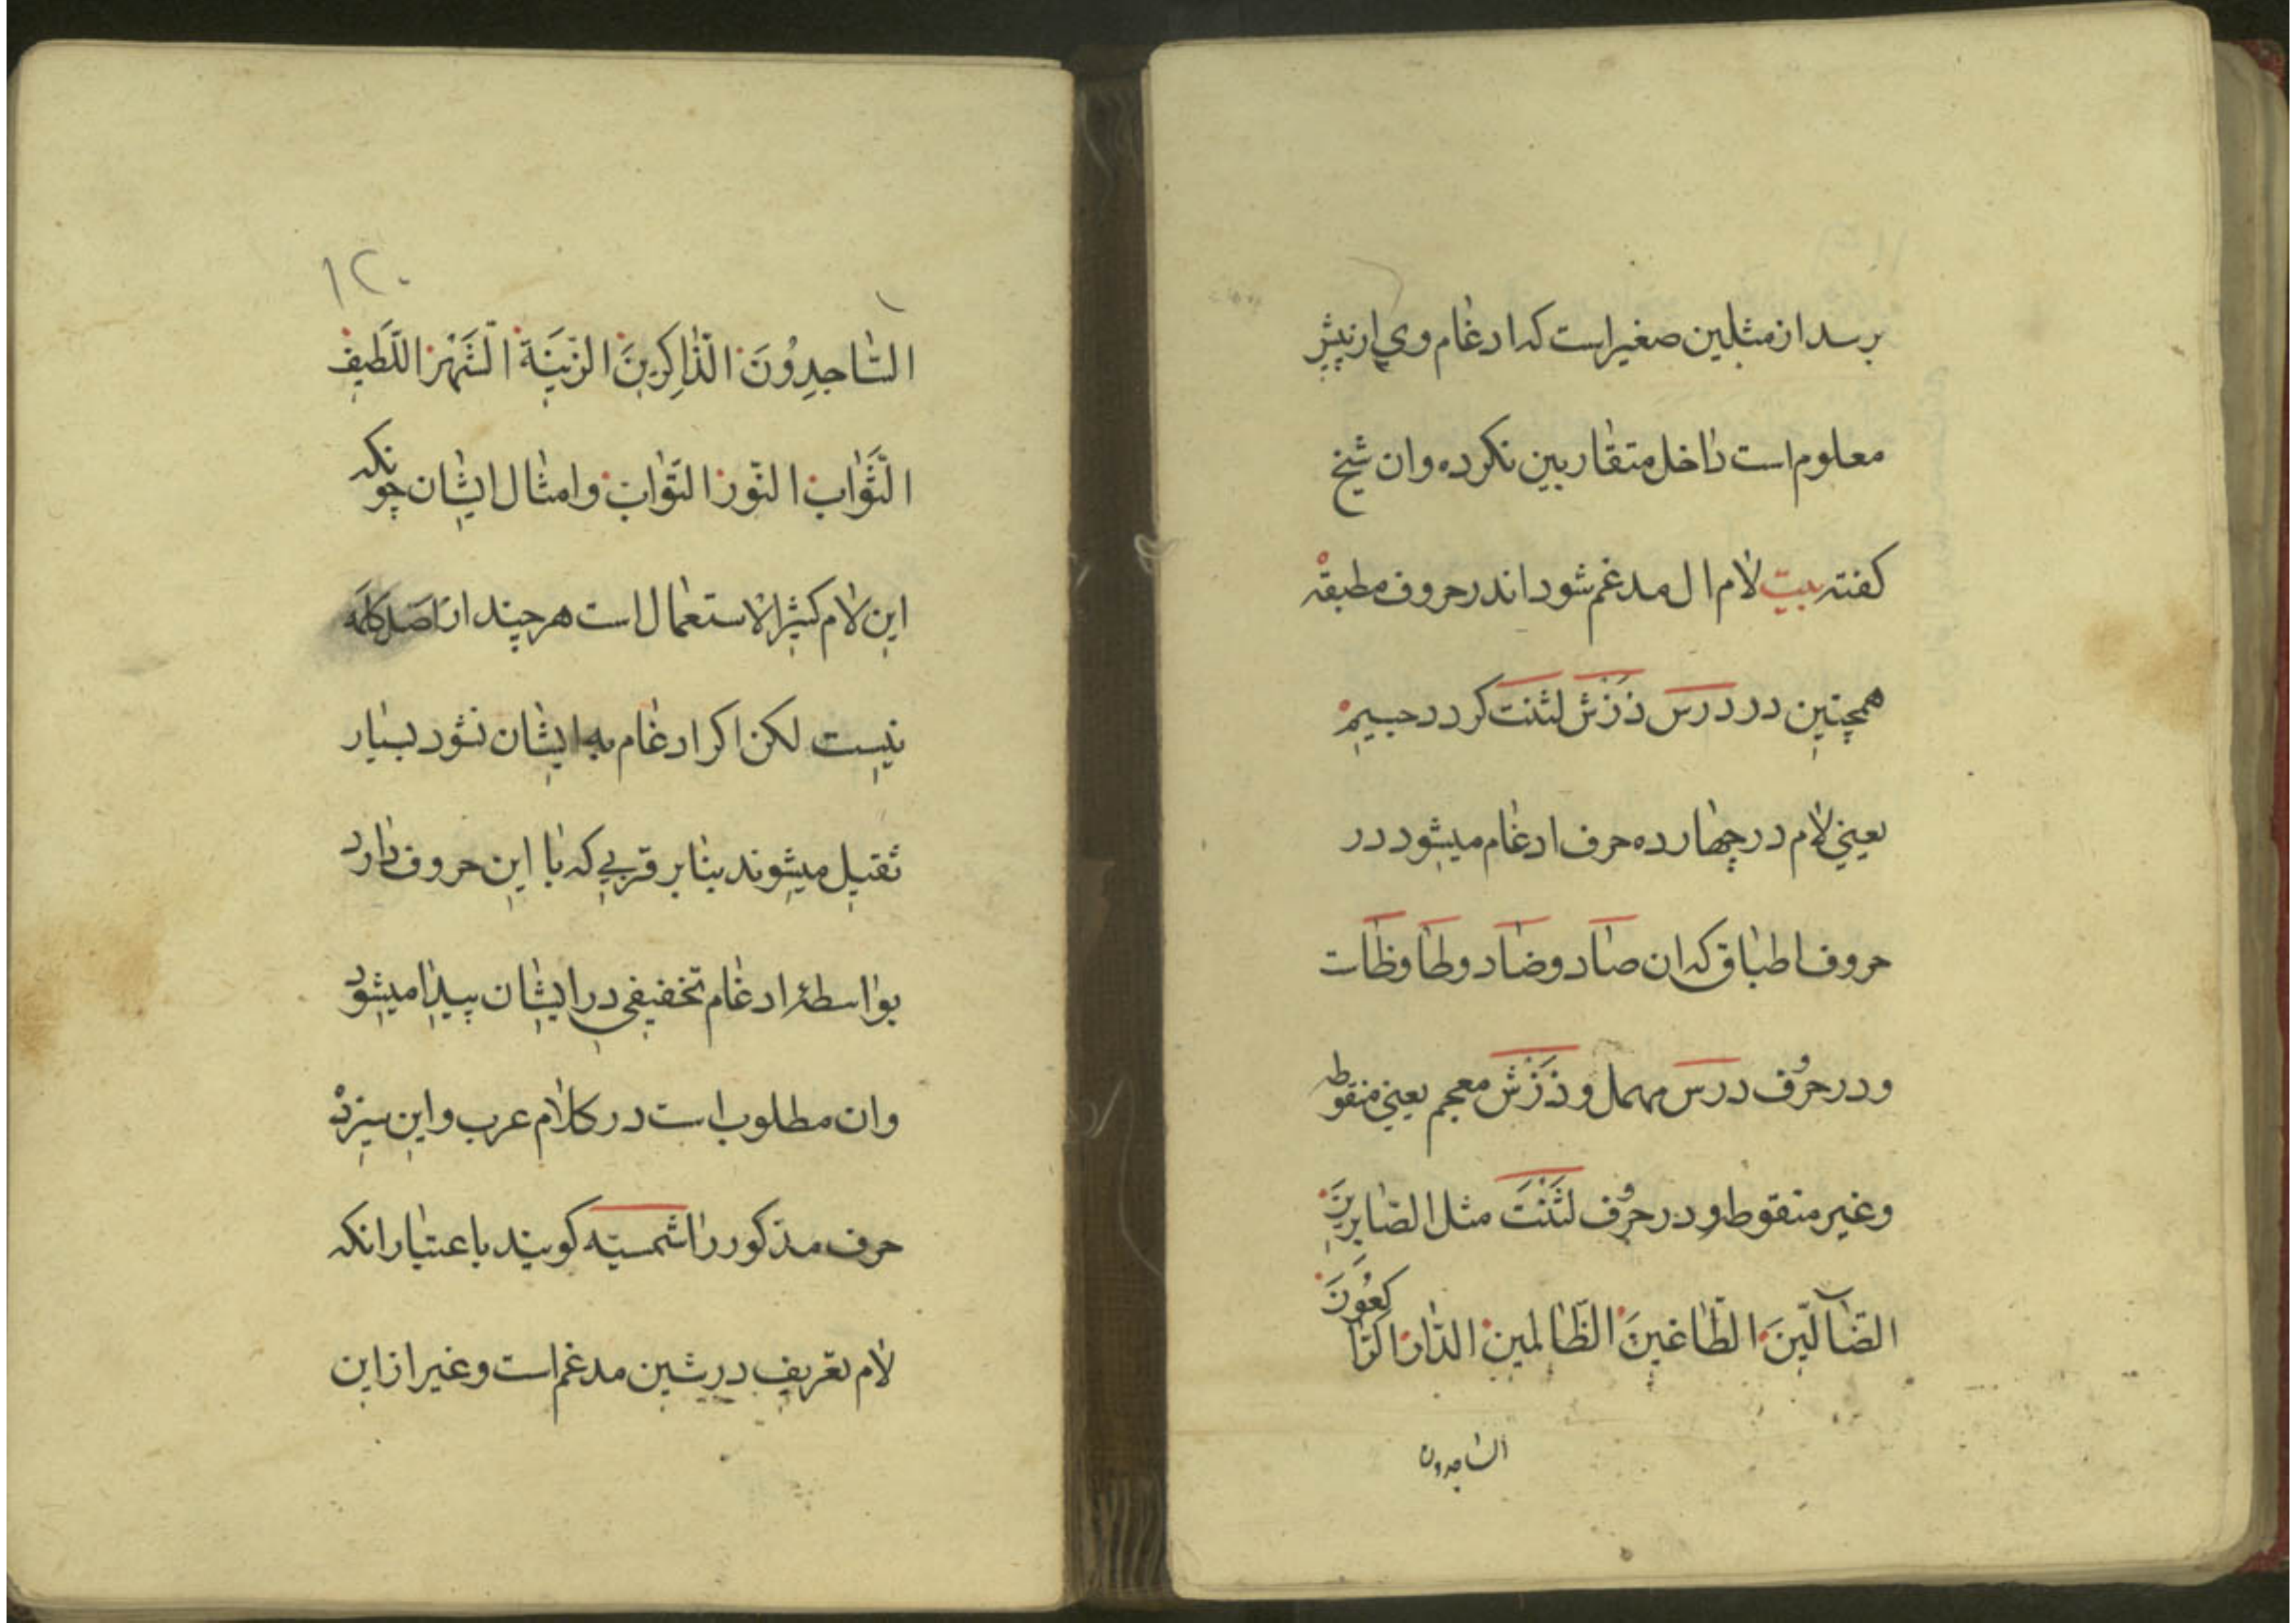 برسد از مثلین صغیر است که ادغام وی از پیش
معلوم است داخل متقاربین نکرده وان شیخ
کفته بیت لام ال مدغم شود اندر حروف مطبقه
همچنین در درس ذزش لثنت کردد جسیم
یعنی لام در چهارده حرف ادغام میشود در
حروف اطباق که ان صاد و ضاد و طا و ظات
و در حروف درس مهمل و ذَزش معجم یعنی منقوطه
و غیر منقوط و در حروف لثَنت مثل الصّابرینَ
الضّآلّینَ الطّاغینَ الظّالمین الدّار الرّاکعُونَ
الساجدون
١٢٠
السّاجِدِوُنَ الذّاکِرینَ الزّینَة الشَّهْر اللّطیف
الثَّوٰاب النّور التوّاب و امثال ایشان چونکه
این لام کثیر الاستعمال است هر چند از اصل کلمه
نیست لکن اکر ادغام به ایشان نشود بسیار
ثقیل میشوند بنابر قربی که با این حروف دارد
بواسطهٔ ادغام تخفیفی در ایشان پیدا میشود
وان مطلوب است در کلام عرب و این سیزده
حرف مذکور را شمسیّه کویند باعتبار انکه
لام تعریف در شین مدغم است و غیر از این